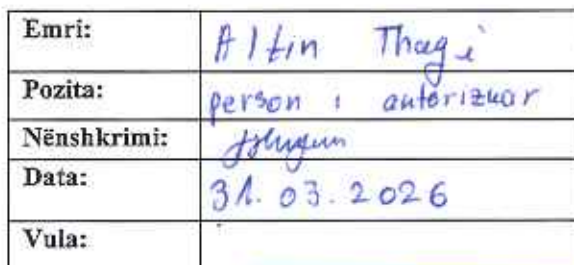 Emri: Altin Thaqi
Pozita: person i autorizuar
Nënshkrimi:
Data: 31.03.2026
Vula: